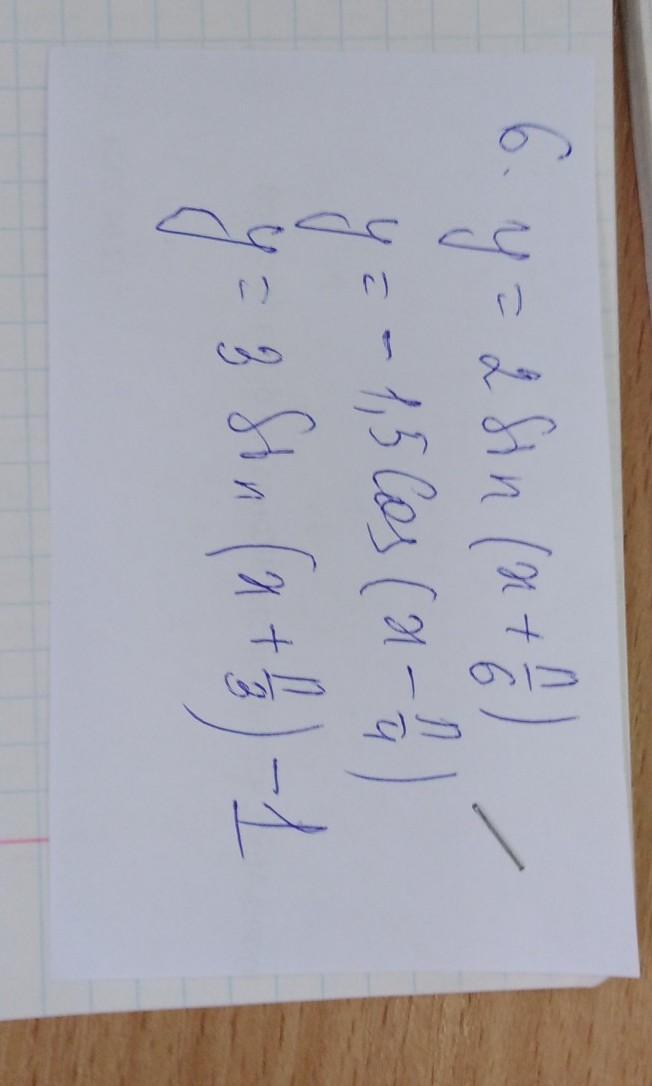 6. y = 2 sin (x + π/6)
y = - 1,5 cos (x - π/4)
y = 3 sin (x + π/3) - 1